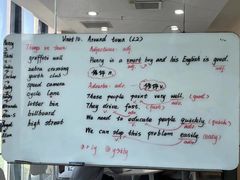 Unit 10. Around town (L2)
Things in town
graffiti wall
zebra crossing
youth club
speed camera
cycle lane
litter bin
billboard
high street
Adjectives: adj.
Henry is a smart boy and his English is good.
adj.
adj.
Adverbs: adv.
These people paint very well. (good)
They drive fast. (fast)
adv.
We need to educate people quickly. (quick)
adv.
We can stop this problem easily. (easy)